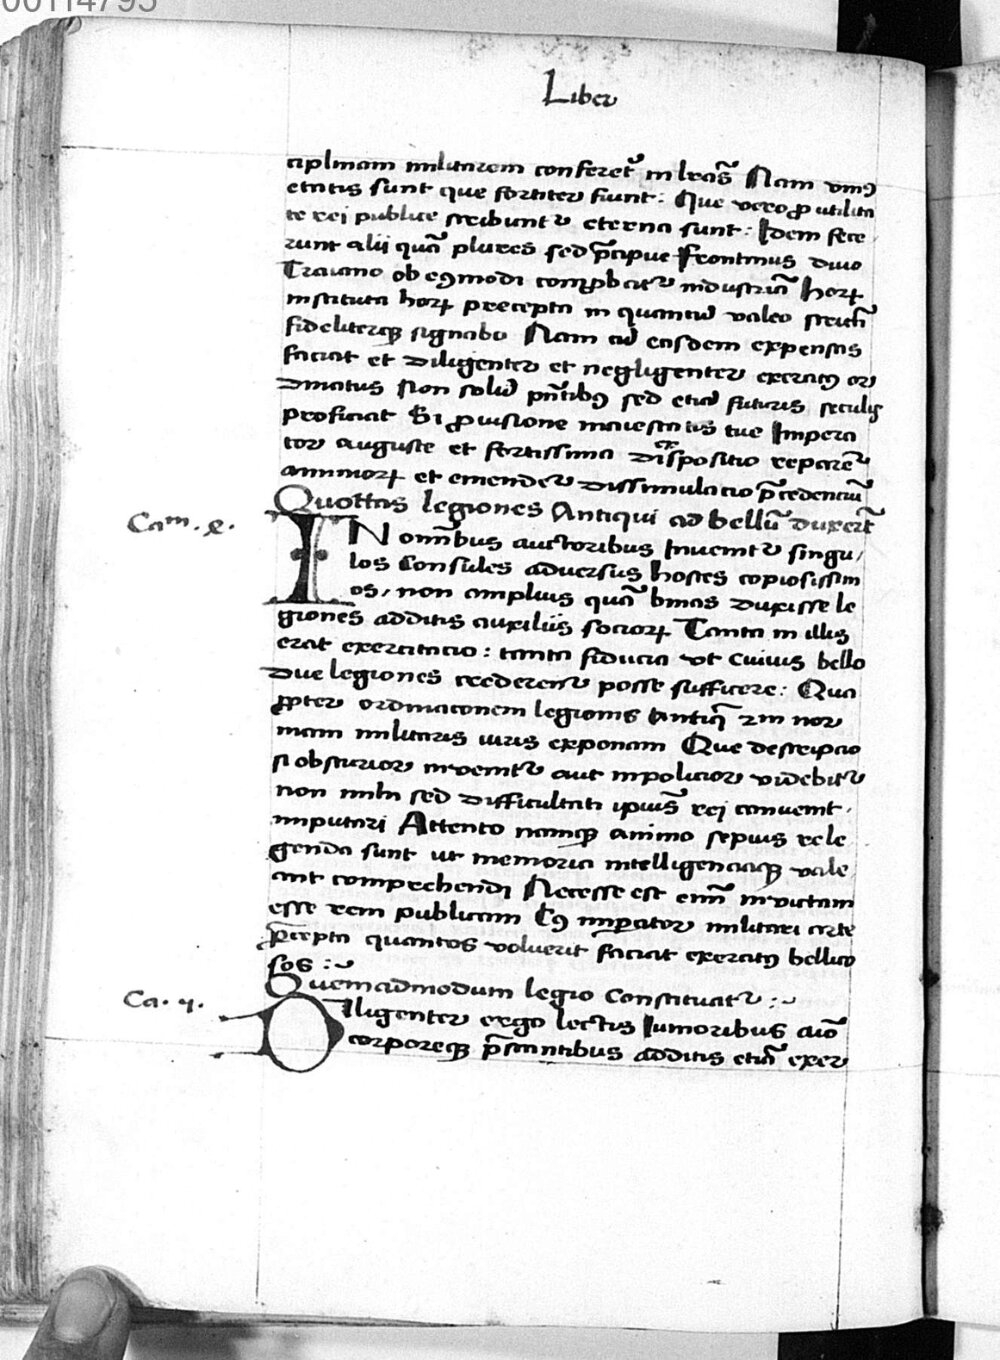 00114795
Liber
ciplinam militarem conferet̄ in lr̄as Nam vniꝰ
etatis sunt que fortiter fiunt: Que vero ꝓ utilita
te rei publice scribunt᷑ eterna sunt: Idem fece
runt alii quā plures sed p̄cipue Frontinus diuo
Traiano ob eiꝰmodi comꝓbat᷑ industriā Hoꝝ
instituta hoꝝ precepta in quantū valeo strictī
fideliterqꝫ signabo Nam cū easdem expensas
faciat et diligenter et negligenter exercitꝰ or
dinatus Non solū pn̄tibꝰ sed etiā futuris seculis
proficiat Si ꝓuisione maiestatis tue Impera
tor auguste et fortissima dispositio reparet᷑
ex
armoꝝ et emendet᷑ dissimulacio p̄cedenciū
Quottas legiones Antiqui ad bellū duxer̄t
Cam. e.
IN omībus auctoribus Inuenit᷑ singu
los Consules aduersus hostes copiosissim
os, non amplius quā binas duxisse le
giones additis auxiliis socioꝝ Tanta in illis
erat exercitacio: tanta fiducia vt cuiuis bello
due legiones crederent᷑ posse sufficere: Qua
ꝓpter ordinaconem legionis Antiq̄ 2m nor
mam militaris iuris exponam Que descripcio
si obscurior inuenit᷑ aut inpolicior videbit᷑
non mihi sed difficultati ipiuš rei conuenit
imputari Attento namqꝫ animo sepius rele
genda sunt ut memoria intelligenciaqꝫ vale
ant comprehendi Necesse est enī inuictam
esse rem publicam Cꝰ imꝑator militari arte
p̄cepta quantos voluerit faciat exercitꝰ bellico
sos :~
Quemadmodum legio Constituat᷑ :~
Ca. ij.
Diligenter ergo lectis Iunioribus aīo
corporeqꝫ p̄stantibus additis etiā exer